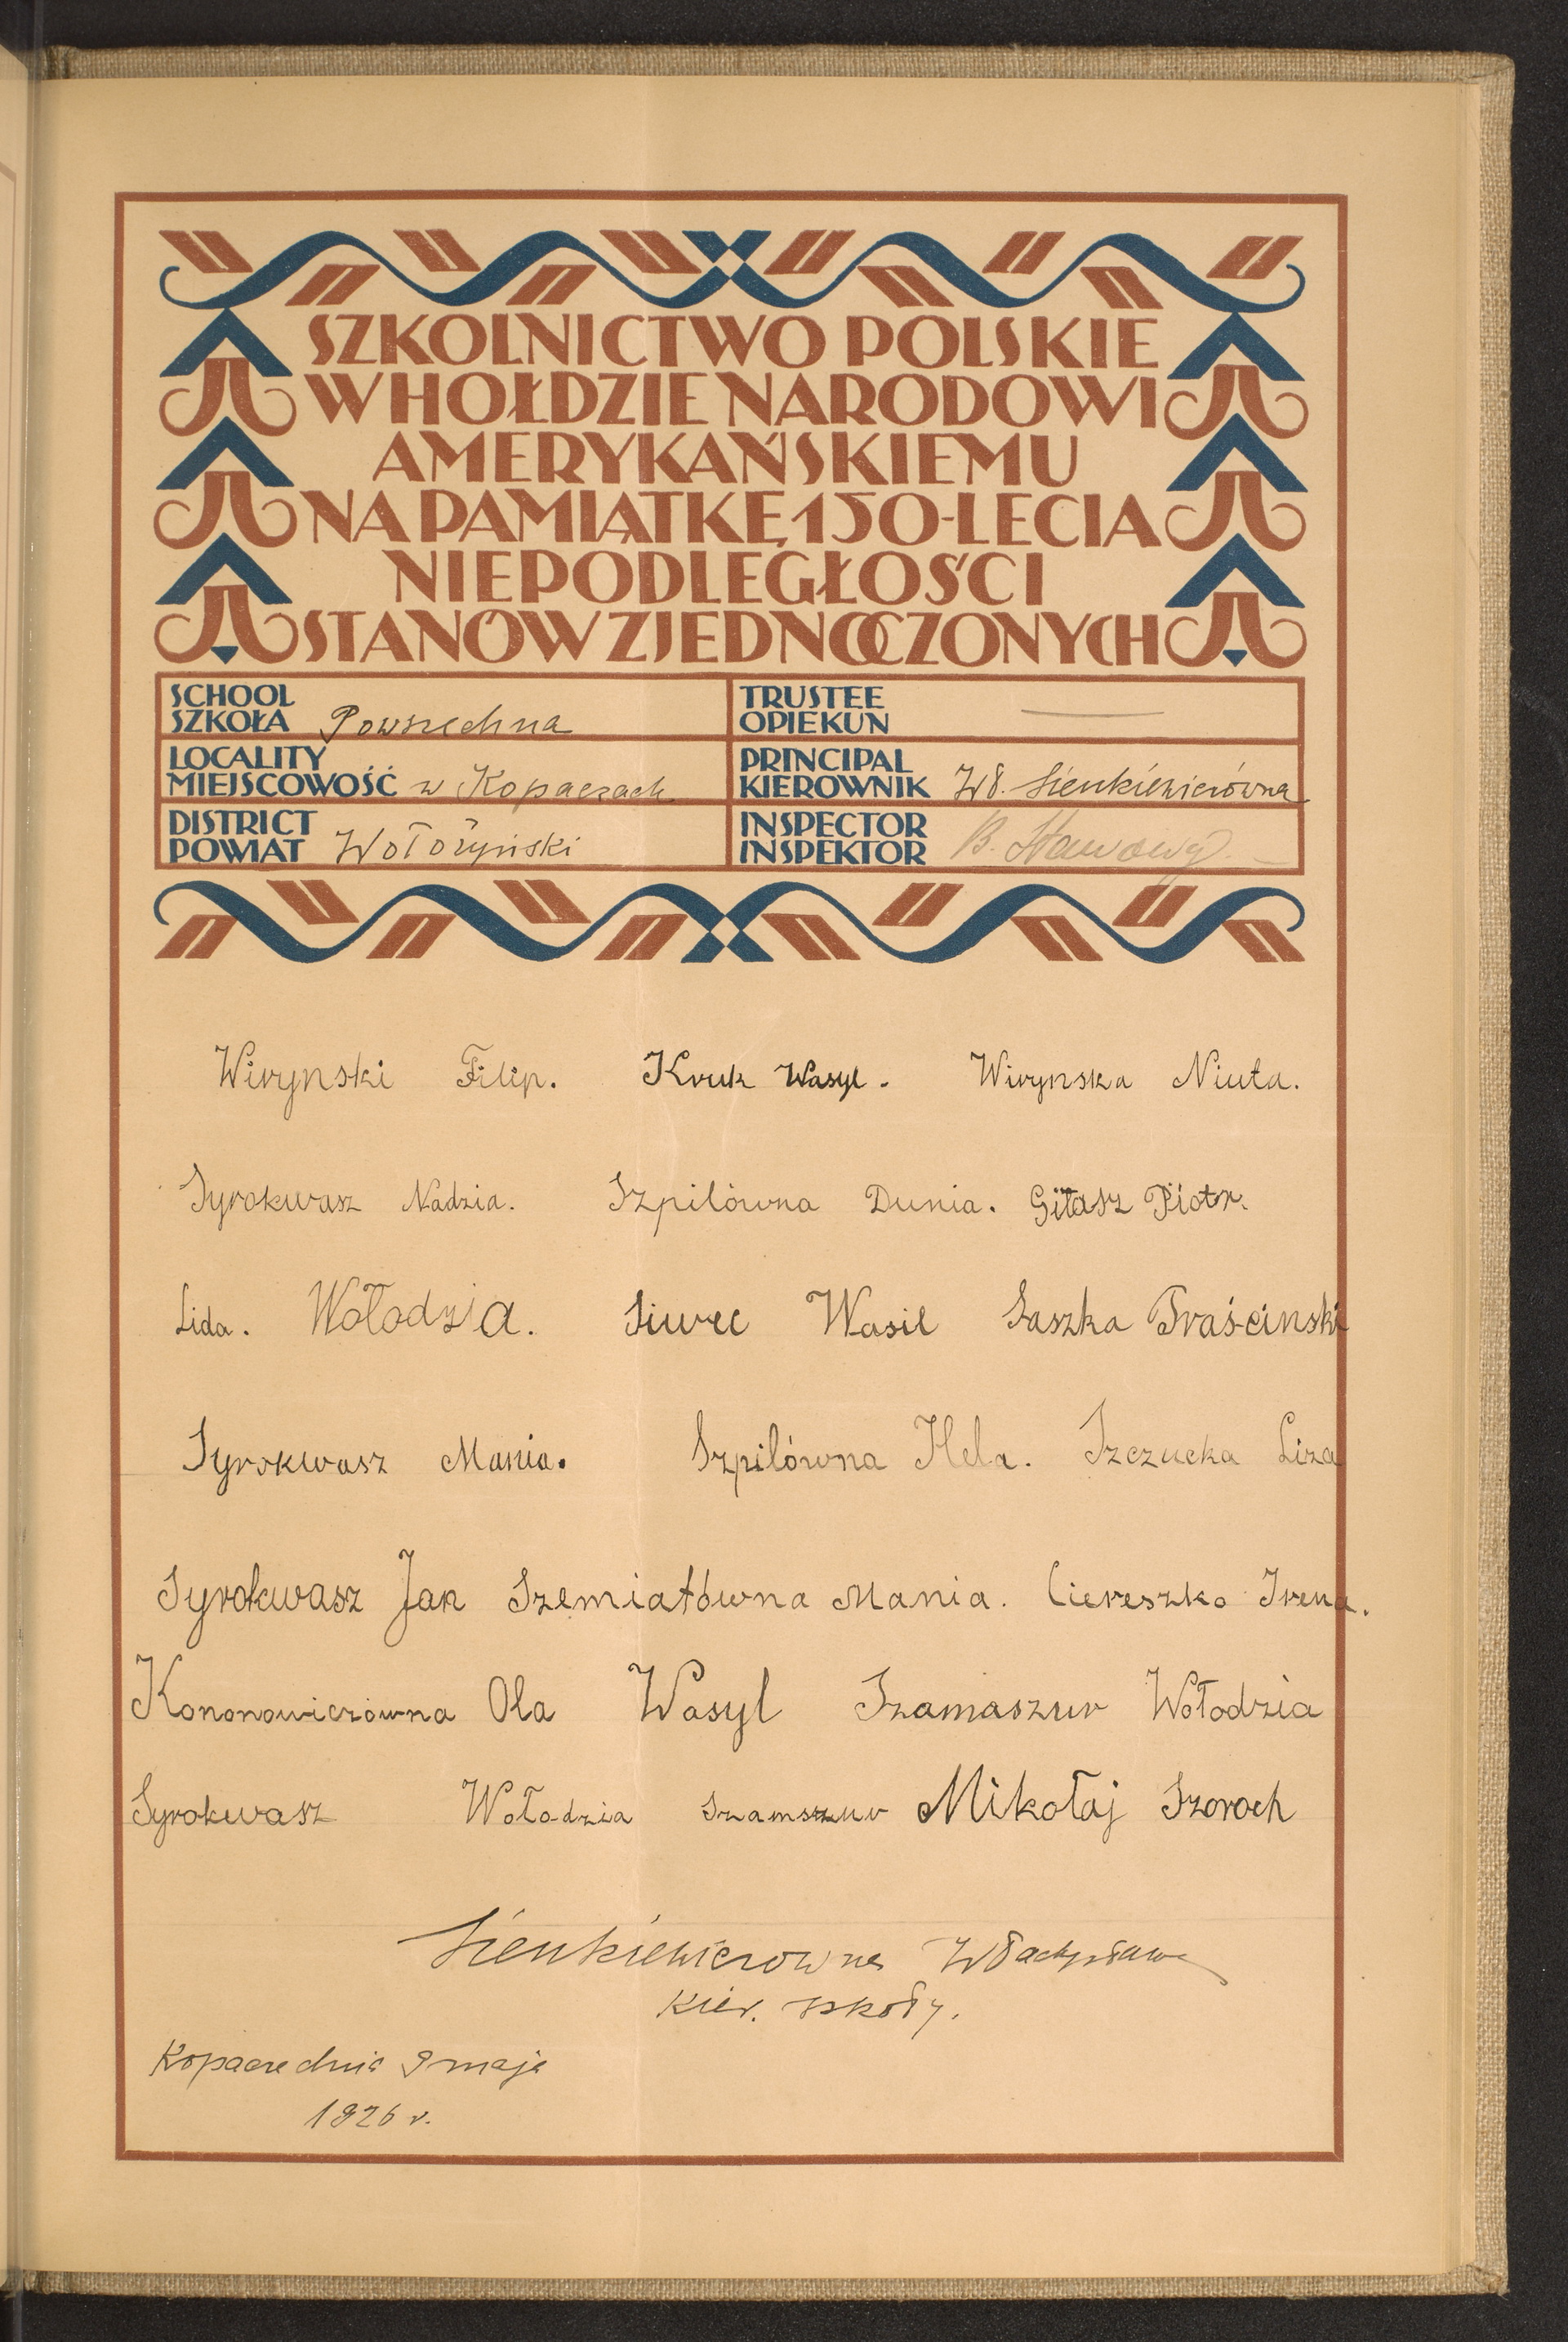 SZKOLNICTWO POLSKIE
W HOŁDZIE NARODOWI
AMERYKAŃSKIEMU
NA PAMIĄTKĘ 150-LECIA
NIEPODLEGŁOŚCI
STANÓW ZJEDNOCZONYCH
SCHOOL
SZKOŁA Powszechna
TRUSTEE
OPIEKUN
LOCALITY
MIEJSCOWOŚĆ w Kopaczach
PRINCIPAL
KIEROWNIK Wł. Sienkiewiczówna
DISTRICT
POWIAT Wołożyński
INSPECTOR
INSPEKTOR B.
Wirynski Filip. Kruk Wasyl. Wirynska Niuta.
Syrokwasz Nadzia. Szpilówna Dunia. Gitasz Piotr.
Lida. Wołodzia. Siwec Wasil Saszka Traścinski
Syrokwasz Mania. Szpilówna Hela. Szczucka Liza
Syrokwasz Jan Szemiatówna Mania. Ciereszko Irena.
Kononowiczówna Ola Wasyl Szamaszur Wołodzia
Syrokwasz Wołodzia Szamszur Mikołaj Szoroch
Sienkiewiczowna Władysława
Kier. szkoły.
Kopacze dnia 9 maja
1926 r.